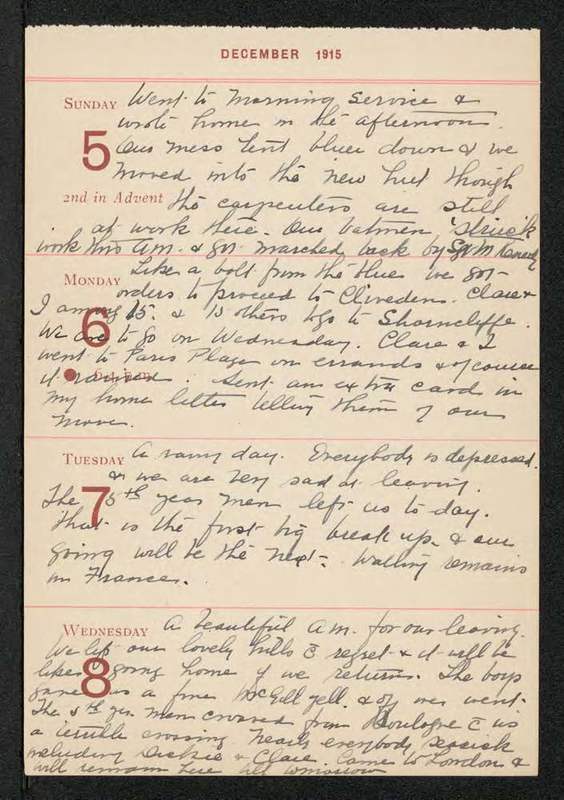 DECEMBER 1915
SUNDAY Went to morning service &
wrote home in the afternoon.
5 Our mess tent blew down & we
moved into the new hut though
2nd in Advent the carpenters are still
at work there. Our batmen "struck
work this a.m. & got marched back by Sgt M Kennedy
MONDAY Like a bolt from the blue we got
orders to proceed to Cliveden. Clare &
6 I among 15. & 13 others to go to Shorncliffe.
We are to go on Wednesday. Clare & I
went to Paris Plage on errands & of course
it rained. Sent an extra card in
my home letter telling them of our
move.
TUESDAY A rainy day. Everybody is depressed.
& we are very sad at leaving.
7 The 5th year men left us to day.
That is the first big break up & our
going will be the next. Walling remains
in France.
WEDNESDAY A beautiful a.m. for our leaving.
We left our lovely hills c̄ regret & it will be
8 like going home if we return. The boys
gave us a fine McGill yell. & off we went.
The 5th yr. men crossed from Boulogne c̄ us
a terrible crossing nearly everybody seasick
including Dickie & Clare. Came to London &
will remain here till tomorrow